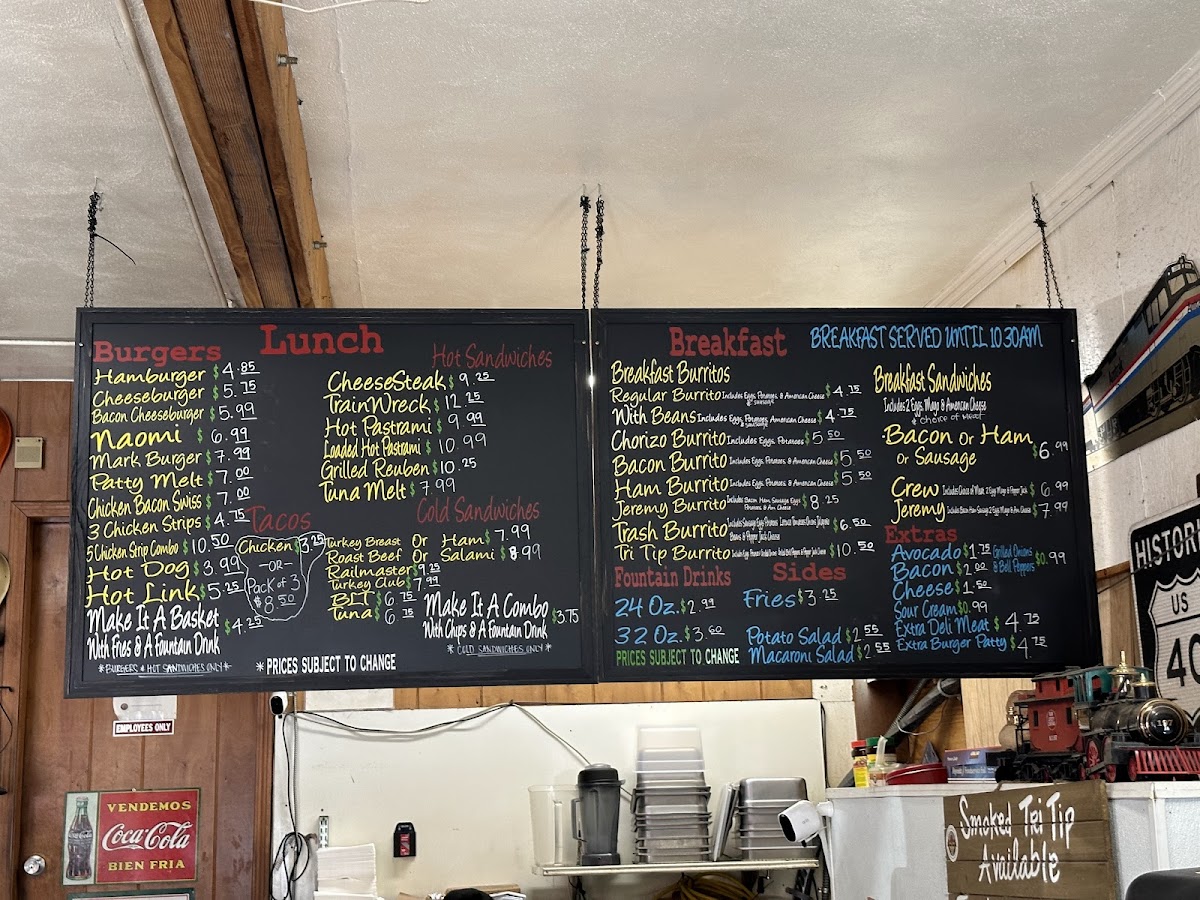 Lunch
Burgers
Hamburger $4.85
Cheeseburger $5.75
Bacon Cheeseburger $5.99
Naomi $6.99
Mark Burger $7.99
Patty Melt $7.00
Chicken Bacon Swiss $7.00
3 Chicken Strips $4.75
5 Chicken Strip Combo $10.50
Hot Dog $3.99
Hot Link $5.25
Make It A Basket $4.25
With Fries & A Fountain Drink
*BURGERS & HOT SANDWICHES ONLY*
Tacos
Chicken $3.25
-OR-
Pack of 3
$8.50
Hot Sandwiches
CheeseSteak $9.25
TrainWreck $12.25
Hot Pastrami $9.99
Loaded Hot Pastrami $10.99
Grilled Reuben $10.25
Tuna Melt $7.99
Cold Sandwiches
Turkey Breast Or Ham $7.99
Roast Beef Or Salami $8.99
Railmaster $9.25
Turkey Club $7.99
BLT $6.75
Tuna $6.75
Make It A Combo $3.75
With Chips & A Fountain Drink
*COLD SANDWICHES ONLY*
*PRICES SUBJECT TO CHANGE
Breakfast
BREAKFAST SERVED UNTIL 10:30AM
Breakfast Burritos
Regular Burrito Includes Eggs, Potatoes & American Cheese $4.75
& SAUSAGE
With Beans Includes Eggs, Potatoes, American Cheese $4.75
& SAUSAGE
Chorizo Burrito Includes Eggs, Potatoes $5.50
Bacon Burrito Includes Eggs, Potatoes & American Cheese $5.50
Ham Burrito Includes Eggs, Potatoes & American Cheese $5.50
Jeremy Burrito Includes Bacon Ham Sausage Eggs $8.25
Potatoes & Am Cheese
Trash Burrito Includes Sausage Eggs Potatoes Lettuce Tomatoes Onions Jalapeño $6.50
Beans & Pepper Jack Cheese
Tri Tip Burrito $10.50
Fountain Drinks
24 Oz. $2.99
32 Oz. $3.60
PRICES SUBJECT TO CHANGE
Sides
Fries $3.25
Potato Salad $2.55
Macaroni Salad $2.55
Breakfast Sandwiches
Includes 2 Eggs, Mayo & American Cheese
& Choice of Meat
Bacon Or Ham
Or Sausage $6.99
Crew Includes Choice of Meat, 2 Eggs Mayo & Pepper Jack $6.99
Jeremy Includes Bacon Ham Sausage 2 Eggs Mayo & Am Cheese $7.99
Extras
Avocado $1.75
Bacon $2.00
Cheese $1.50
Sour Cream $0.99
Extra Deli Meat $4.75
Extra Burger Patty $4.75
Grilled Onions
& Bell Peppers $0.99
EMPLOYEES ONLY
VENDEMOS
Coca-Cola
BIEN FRIA
HISTORIC
US
Smoked Tri Tip
Available